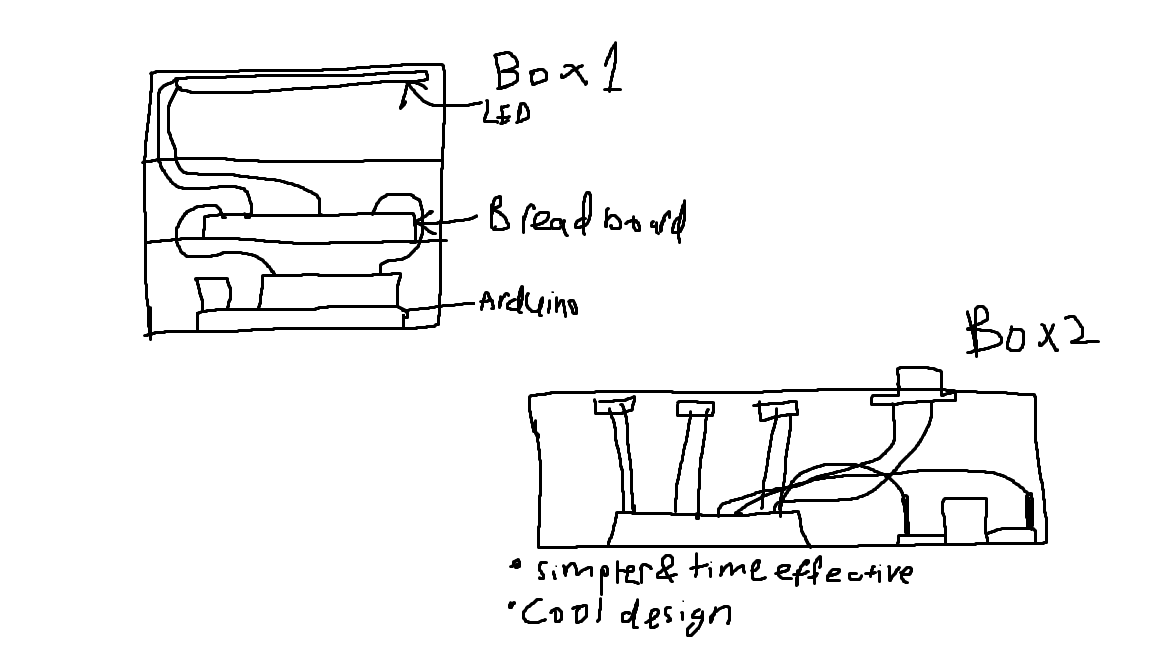 Box 1
LED
Breadboard
Arduino
Box 2
• simpler & time effective
• Cool design